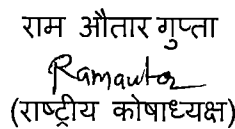 राम औतार गुप्ता
Ramautar
(राष्ट्रीय कोषाध्यक्ष)